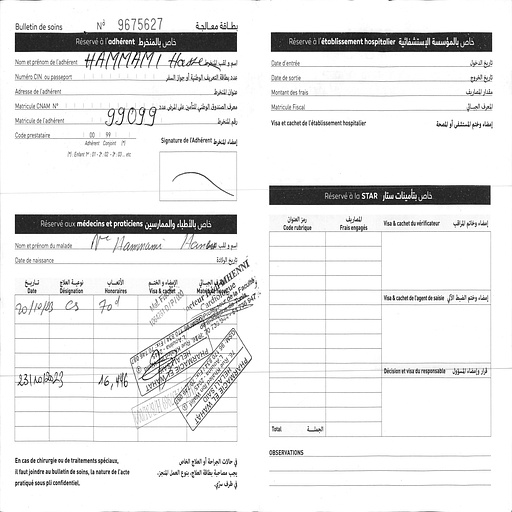 Bulletin de soins N° 9675627 بطاقة معالجة
Réservé à l'adhérent خاص بالمنخرط
Nom et prénom de l'adhérent HAMMAMI اسم و لقب المنخرط
Numéro CIN ou passeport عدد بطاقة التعريف الوطنية أو جواز السفر
Adresse de l'adhérent عنوان المنخرط
Matricule CNAM N° معرف الصندوق الوطني للتأمين على المرض عدد
Matricule de l'adhérent 99099 رقم المنخرط
Code prestataire 00 99
Adhérent Conjoint (*)
(*) : Enfant 1er : 01 - 2e : 02 - 3e : 03 ... etc
Signature de l'Adhérent إمضاء المنخرط
Réservé aux médecins et praticiens خاص بالأطباء والممارسين
Nom et prénom du malade Hammami اسم و لقب
Date de naissance تاريخ الولادة
تاريخ نوعية العلاج الأتعاب الإمضاء و الختم
Date Désignation Honoraires Visa & cachet
20/10/23 CS 70d
23/10/2023 16,446
PHARMACIE EL WAHAT
PHARMACIE EL WAHAT
En cas de chirurgie ou de traitements spéciaux,
il faut joindre au bulletin de soins, la nature de l'acte
pratiqué sous pli confidentiel.
في حالات الجراحة أو العلاج الخاص
يجب مصاحبة بطاقة العلاج، بنوع العمل المنجز،
في ظرف سري.
Réservé à l'établissement hospitalier خاص بالمؤسسة الإستشفائية
Date d'entrée تاريخ الدخول
Date de sortie تاريخ الخروج
Montant des frais مقدار المصاريف
Matricule Fiscal المعرف الجبائي
Visa et cachet de l'établissement hospitalier إمضاء وختم المستشفى أو المصحة
Réservé à la STAR خاص بتأمينات ستار
رمز العنوان المصاريف
Code rubrique Frais engagés
Visa & cachet du vérificateur إمضاء وخاتم المراقب
Visa & cachet de l'agent de saisie إمضاء وختم الضبط الآلي
Décision et visa du responsable قرار وإمضاء المسؤول
Total الجملة
OBSERVATIONS